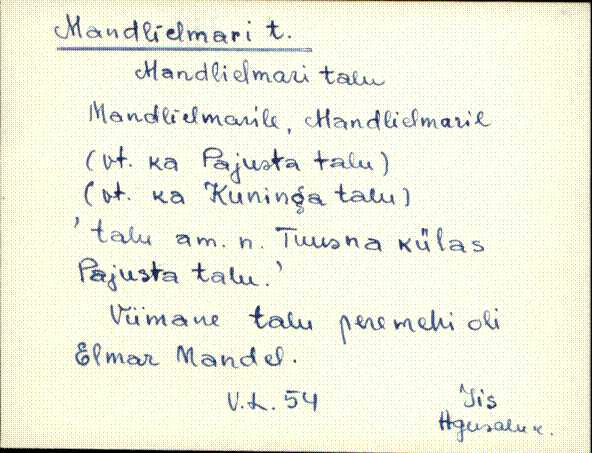 Mandlielmari t.
Mandlielmari talu
Mandlielmarile, Mandlielmaril
(vt. ka Pajusta talu)
(vt. ka Kuninga talu)
'talu am. n. Tuusna külas
Pajusta talu.'
Viimane talu peremehi oli
Elmar Mandel.
V.L. 54
Iis